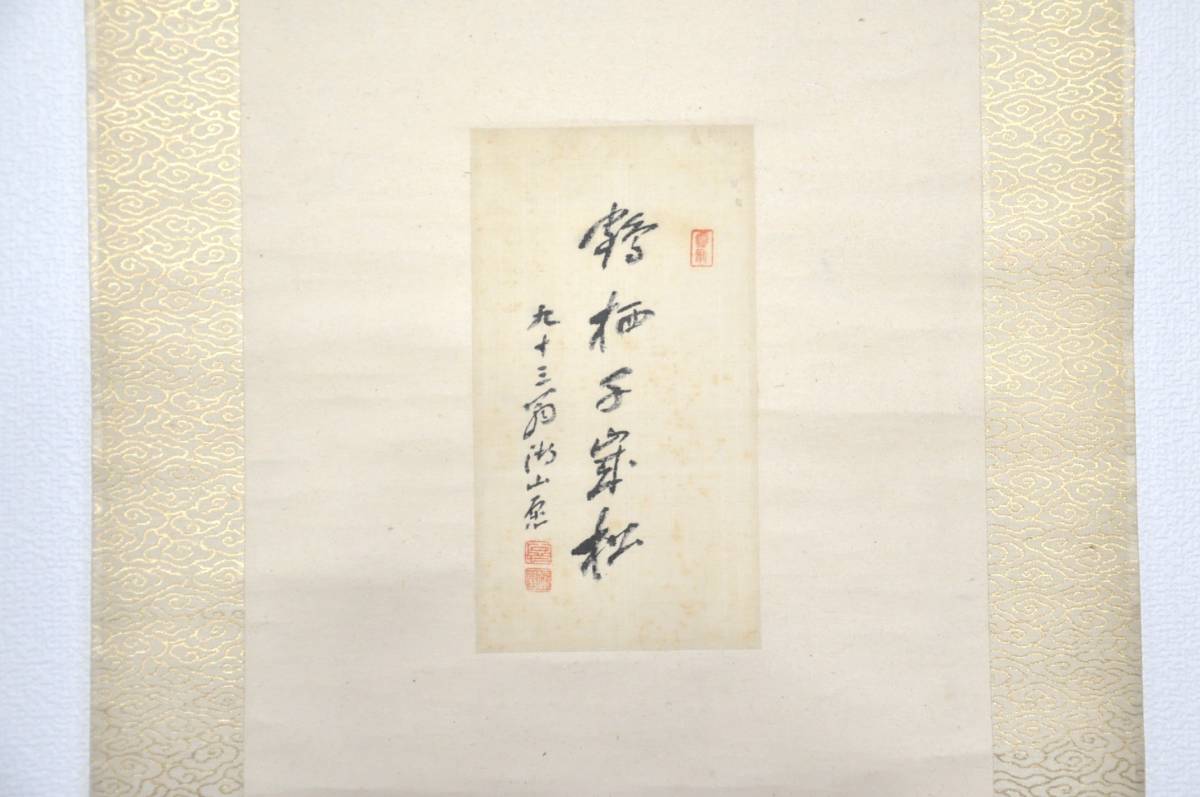 鶴栖千歳松
九十三翁湖山愿